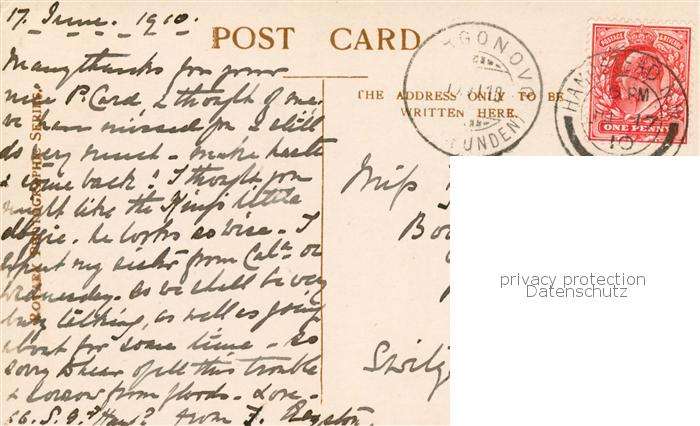 17. June. 1910.
POST CARD
Many thanks for your
nice P. Card & thought of me.
We have missed you & still
do very much - make haste
& come back! I thought you
might like the King's little
dogie. he looks so wise - I
expect my sister from Cal<sup>a</sup> on
Wednesday. so we shall be very
busy talking, as well as going
about for some time - so
sorry to hear of all this trouble
& sorrow from floods - Love -
from F.
ROTARY PHOTOGRAPHIC SERIES.
THE ADDRESS ONLY TO BE
WRITTEN HERE.
Miss
Bo
Switz
HAMPSTEAD N.W.
PM
10
ONE PENNY
privacy protection
Datenschutz